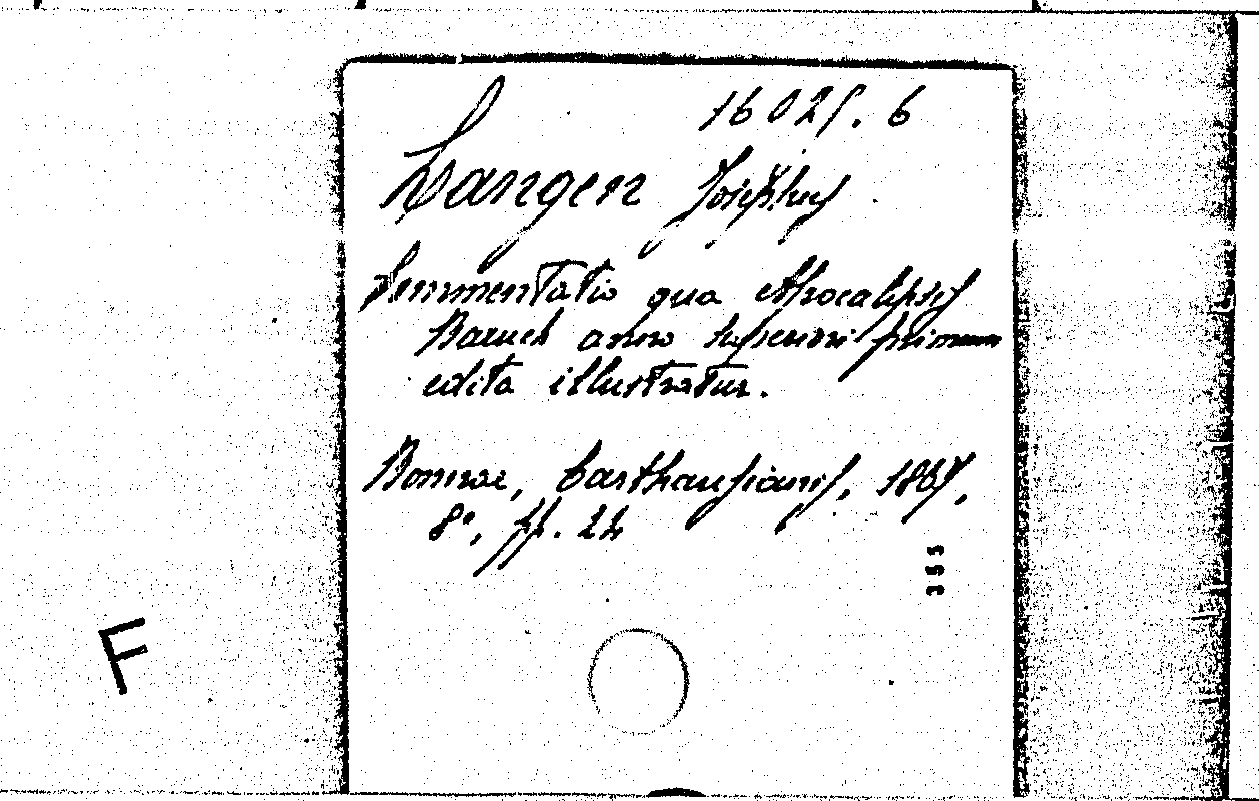 16025. 6
Langen Josephus
Commentatio qua Apocalipsis
Baruch anno superiori primum
edita illustratur.
Bonnae, Carthausianis, 1867,
8°, pp. 24
355
F